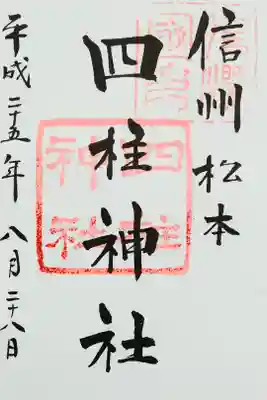 信州 松本
四柱神社
平成二十五年 八月二十八日
四柱神社